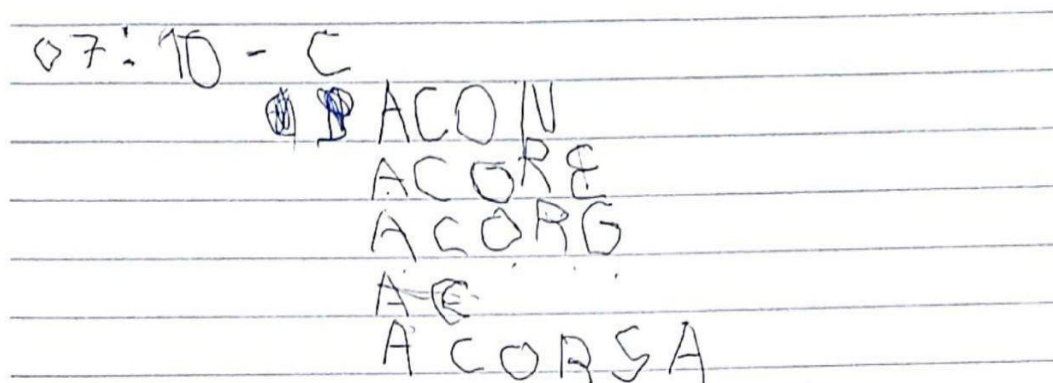 07:10 - C
ACON
ACORE
ACORG
AC
ACORSA